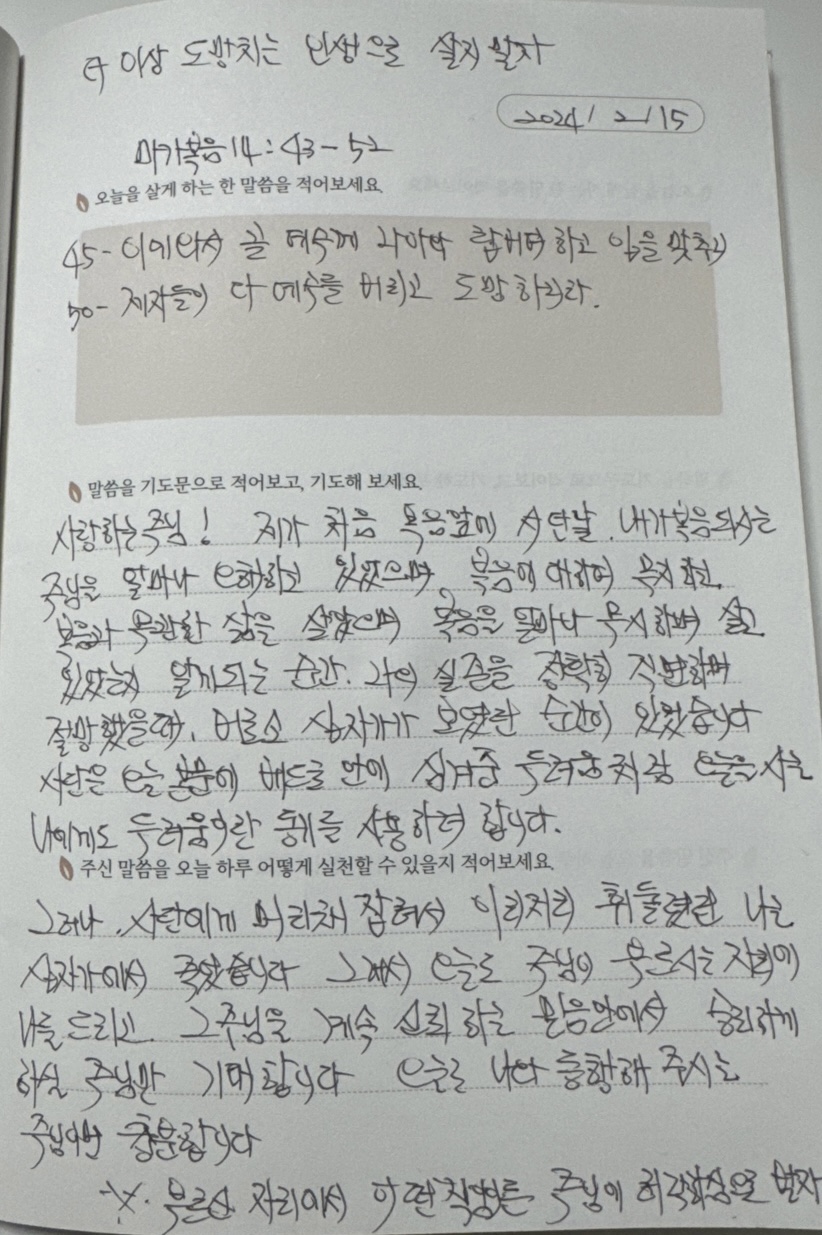 더 이상 도망치는 인생으로 살지 말자
2024/ 2/15
마가복음 14:43-52
오늘을 살게 하는 한 말씀을 적어보세요.
45- 이에 와서 곧 예수께 나아와 랍비여 하고 입을 맞추니
50- 제자들이 다 예수를 버리고 도망하니라.
말씀을 기도문으로 적어보고, 기도해 보세요.
사랑하는 주님! 제가 처음 복음앞에 서던날. 내가 복음되시는
주님을 얼마나 오해하고 있었으며, 복음에 대하여 무지하고.
복음과 무관한 삶을 살았으며 복음을 얼마나 무시하며 살고
있었는지 알게되는 순간. 나의 실존을 정확히 직면하며
절망했을때, 비로소 십자가가 보였던 순간이 있었습니다
사단은 오늘 본문에 베드로 안에 심겨준 두려움처럼 오늘을 사는
나에게도 두려움이란 통치를 사용하려 합니다.
주신 말씀을 오늘 하루 어떻게 실천할 수 있을지 적어보세요.
그러나, 사단에게 머리채 잡혀서 이리저리 휘둘렸던 나는
십자가에서 죽었습니다 그래서 오늘도 주님이 부르시는 자리에
나를 드리고. 그 주님을 계속 신뢰하는 믿음안에서 승리하게
하실 주님만 기대합니다 오늘도 나와 동행해 주시는
주님이면 충분합니다
※. 부르신 자리에서 어떤 직명든 주님이 허락하심으로 받자